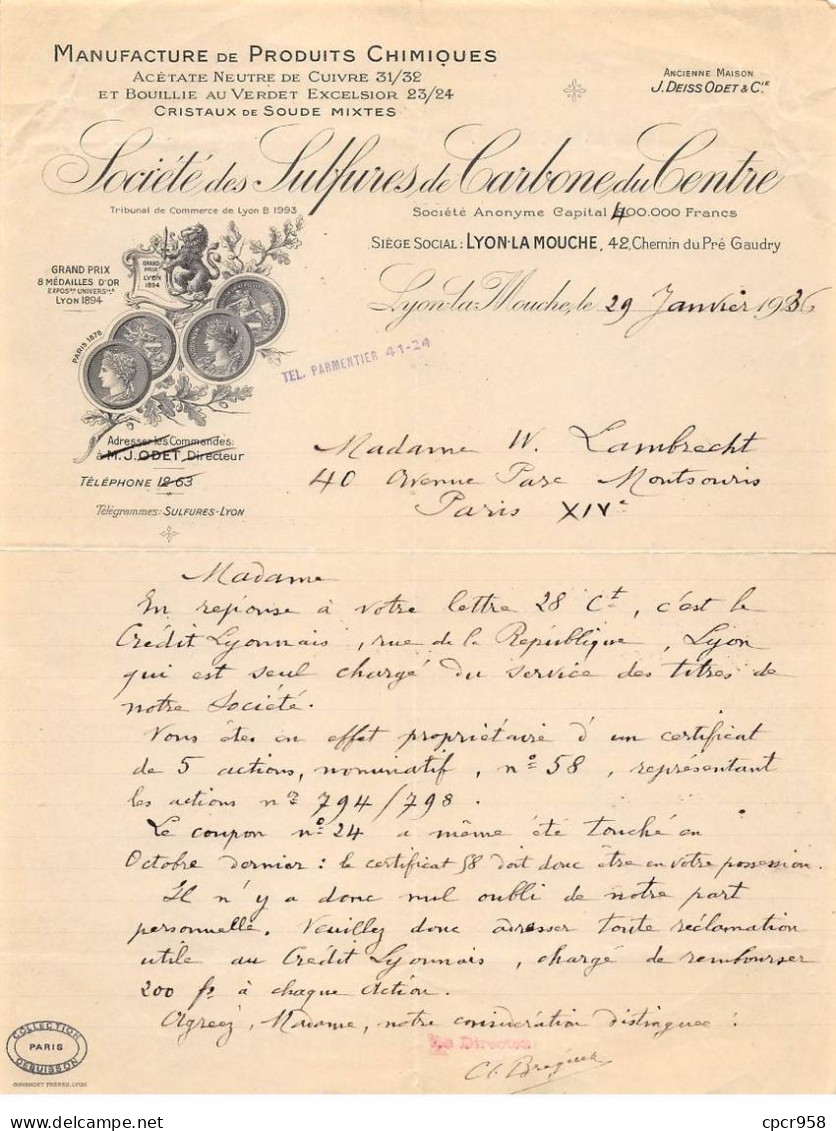 MANUFACTURE DE PRODUITS CHIMIQUES
ACÉTATE NEUTRE DE CUIVRE 31/32
ET BOUILLIE AU VERDET EXCELSIOR 23/24
CRISTAUX DE SOUDE MIXTES
ANCIENNE MAISON
J. DEISS ODET & C.IE
Société des Sulfures de Carbone du Centre
Tribunal de Commerce de Lyon B 1993
Société Anonyme Capital 400.000 Francs
SIÈGE SOCIAL: LYON-LA MOUCHE, 42, Chemin du Pré Gaudry
GRAND PRIX
8 MÉDAILLES D'OR
EXPOS.ON UNIVERS.LLE
LYON 1894
GRAND PRIX LYON 1894
PARIS 1878
Lyon-la-Mouche, le 29 Janvier 1936
TEL. PARMENTIER 41-24
Adresser les Commandes:
à M. J. ODET, Directeur
TÉLÉPHONE 12-63
Télégrammes: SULFURES-LYON
Madame W. Lambrecht
40 Avenue Parc Montsouris
Paris XIVe
Madame
En réponse à votre lettre 28 Ct, c'est le
Crédit Lyonnais, rue de la République, Lyon
qui est seul chargé du service des titres de
notre Société.
Vous êtes en effet propriétaire d'un certificat
de 5 actions, nominatif, n° 58, représentant
les actions nos 794/798.
Le coupon n° 24 a même été touché en
Octobre dernier: le certificat 58 doit donc être en votre possession.
Il n'y a donc nul oubli de notre part
personnelle. Veuillez donc adresser toute réclamation
utile au Crédit Lyonnais, chargé de rembourser
200 frs à chaque action.
Agréez, Madame, notre considération distinguée:
Le Directeur
COLLECTION
PARIS
DEBUISSON
cpcr958